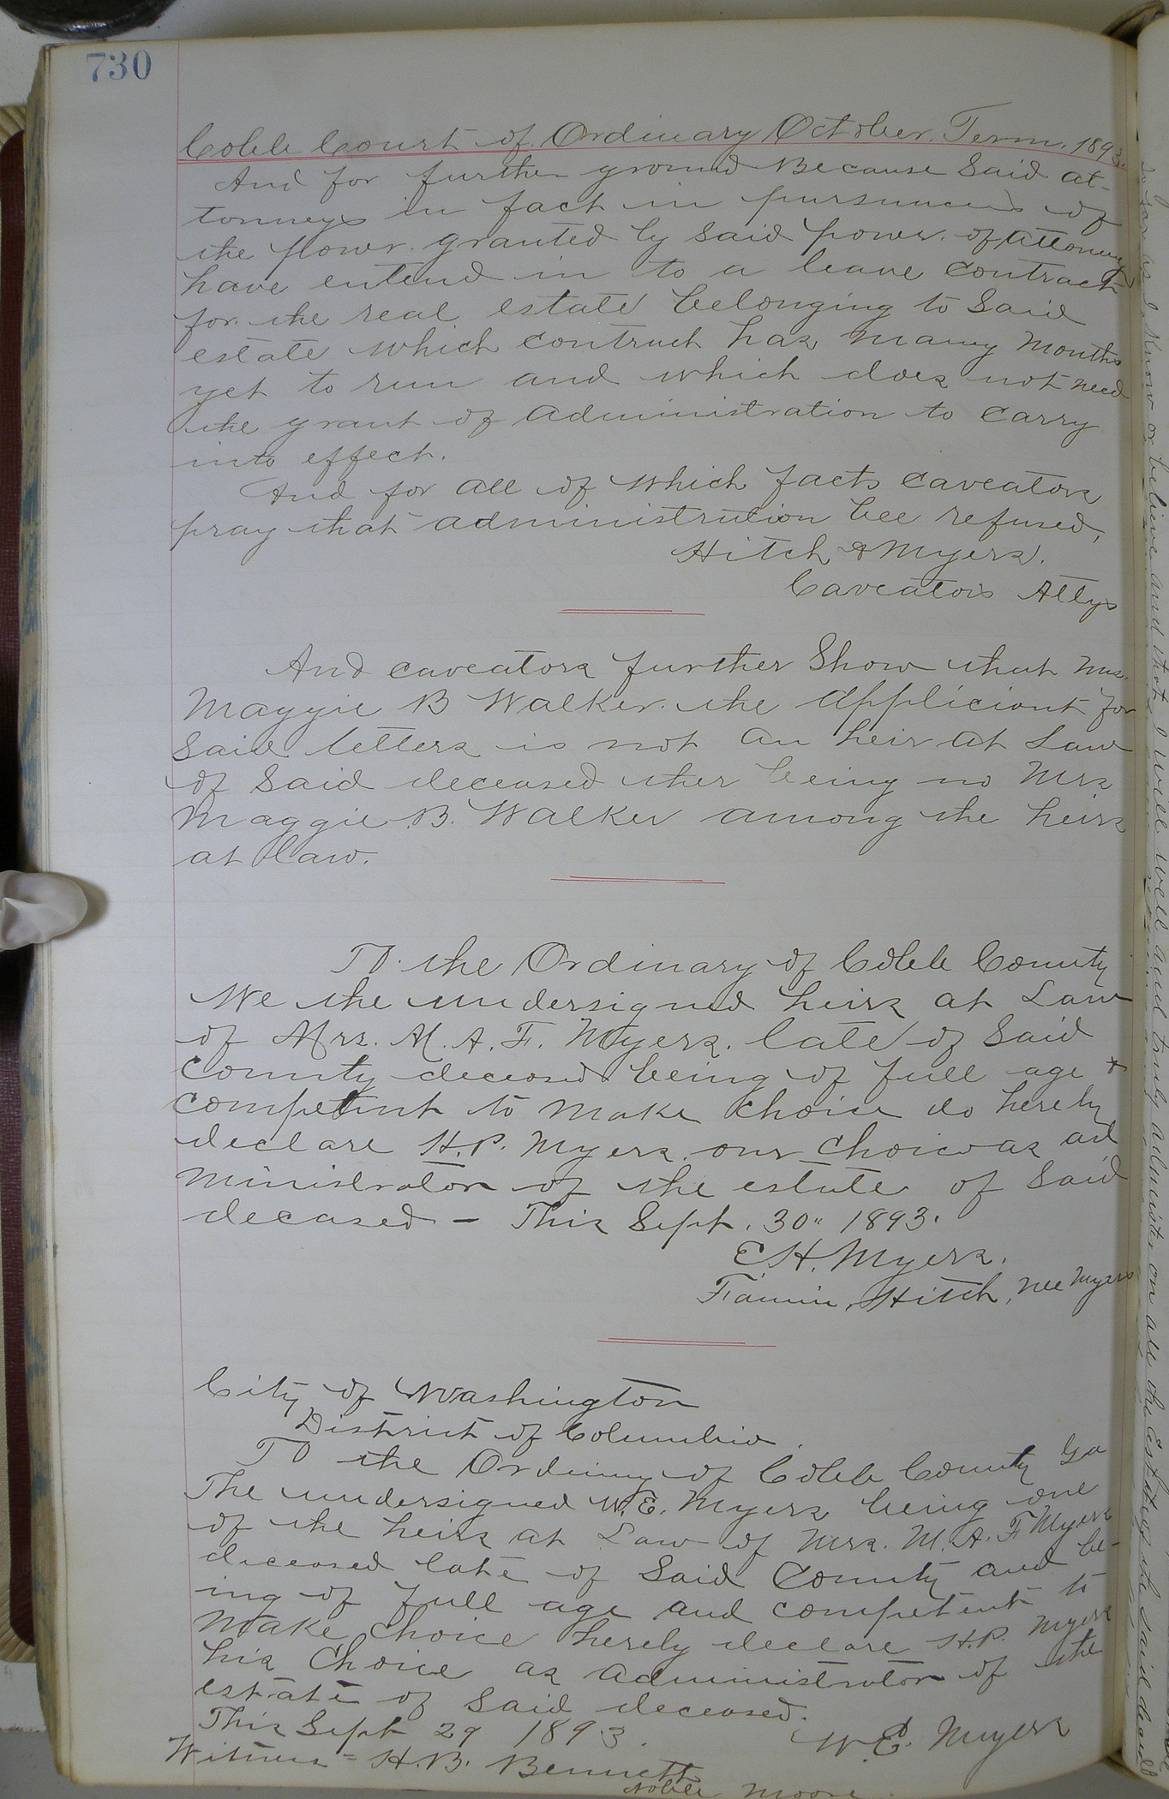 730
Cobb Court of Ordinary October Term, 1893.
And for further ground Because Said at-
torneys in fact in pursuance of
the power granted by Said power of attorney
have entend in to a leave contract
for the real estate belonging to Said
estate which contract has many months
yet to run and which does not need
the grant of administration to carry
into effect.
And for all of which facts caveators
pray that administration bee refused,
Hitch & Myers.
Caveators Attys
And caveators further Show that Mrs.
Maggie B Walker the Appliciant for
Said letters is not an heir at Law
of Said deceased ther being no Mrs
Maggie B. Walker among the heirs
at law.
To the Ordinary of Cobb County
We the undersigned heirs at Law
of Mrs. M. A. F. Myers late of Said
County deceased being of full age &
competent to make choice do hereby
declare H.P. Myers our choice as ad
ministrator of the estate of Said
decased - This Sept. 30" 1893.
C H. Myers.
Fannie Hitch, nee Myers
City of Washington
District of Columbia.
To the Ordinary of Cobb County Ga
The undersigned W.E. Myers being one
of the heirs at Law of Mrs. M. A. F Myers
deceased late of Said County and be-
ing of full age and competent to
make choice hereby declare H.P. Myers
his choice as administrator of the
estate of Said deceased.
This Sept 29 1893.
W E. Myers
Witness = H.B. Bennett
Noble Moore
so far as I know or believe and that I will well and truly administer on all the Estate of the said deceased